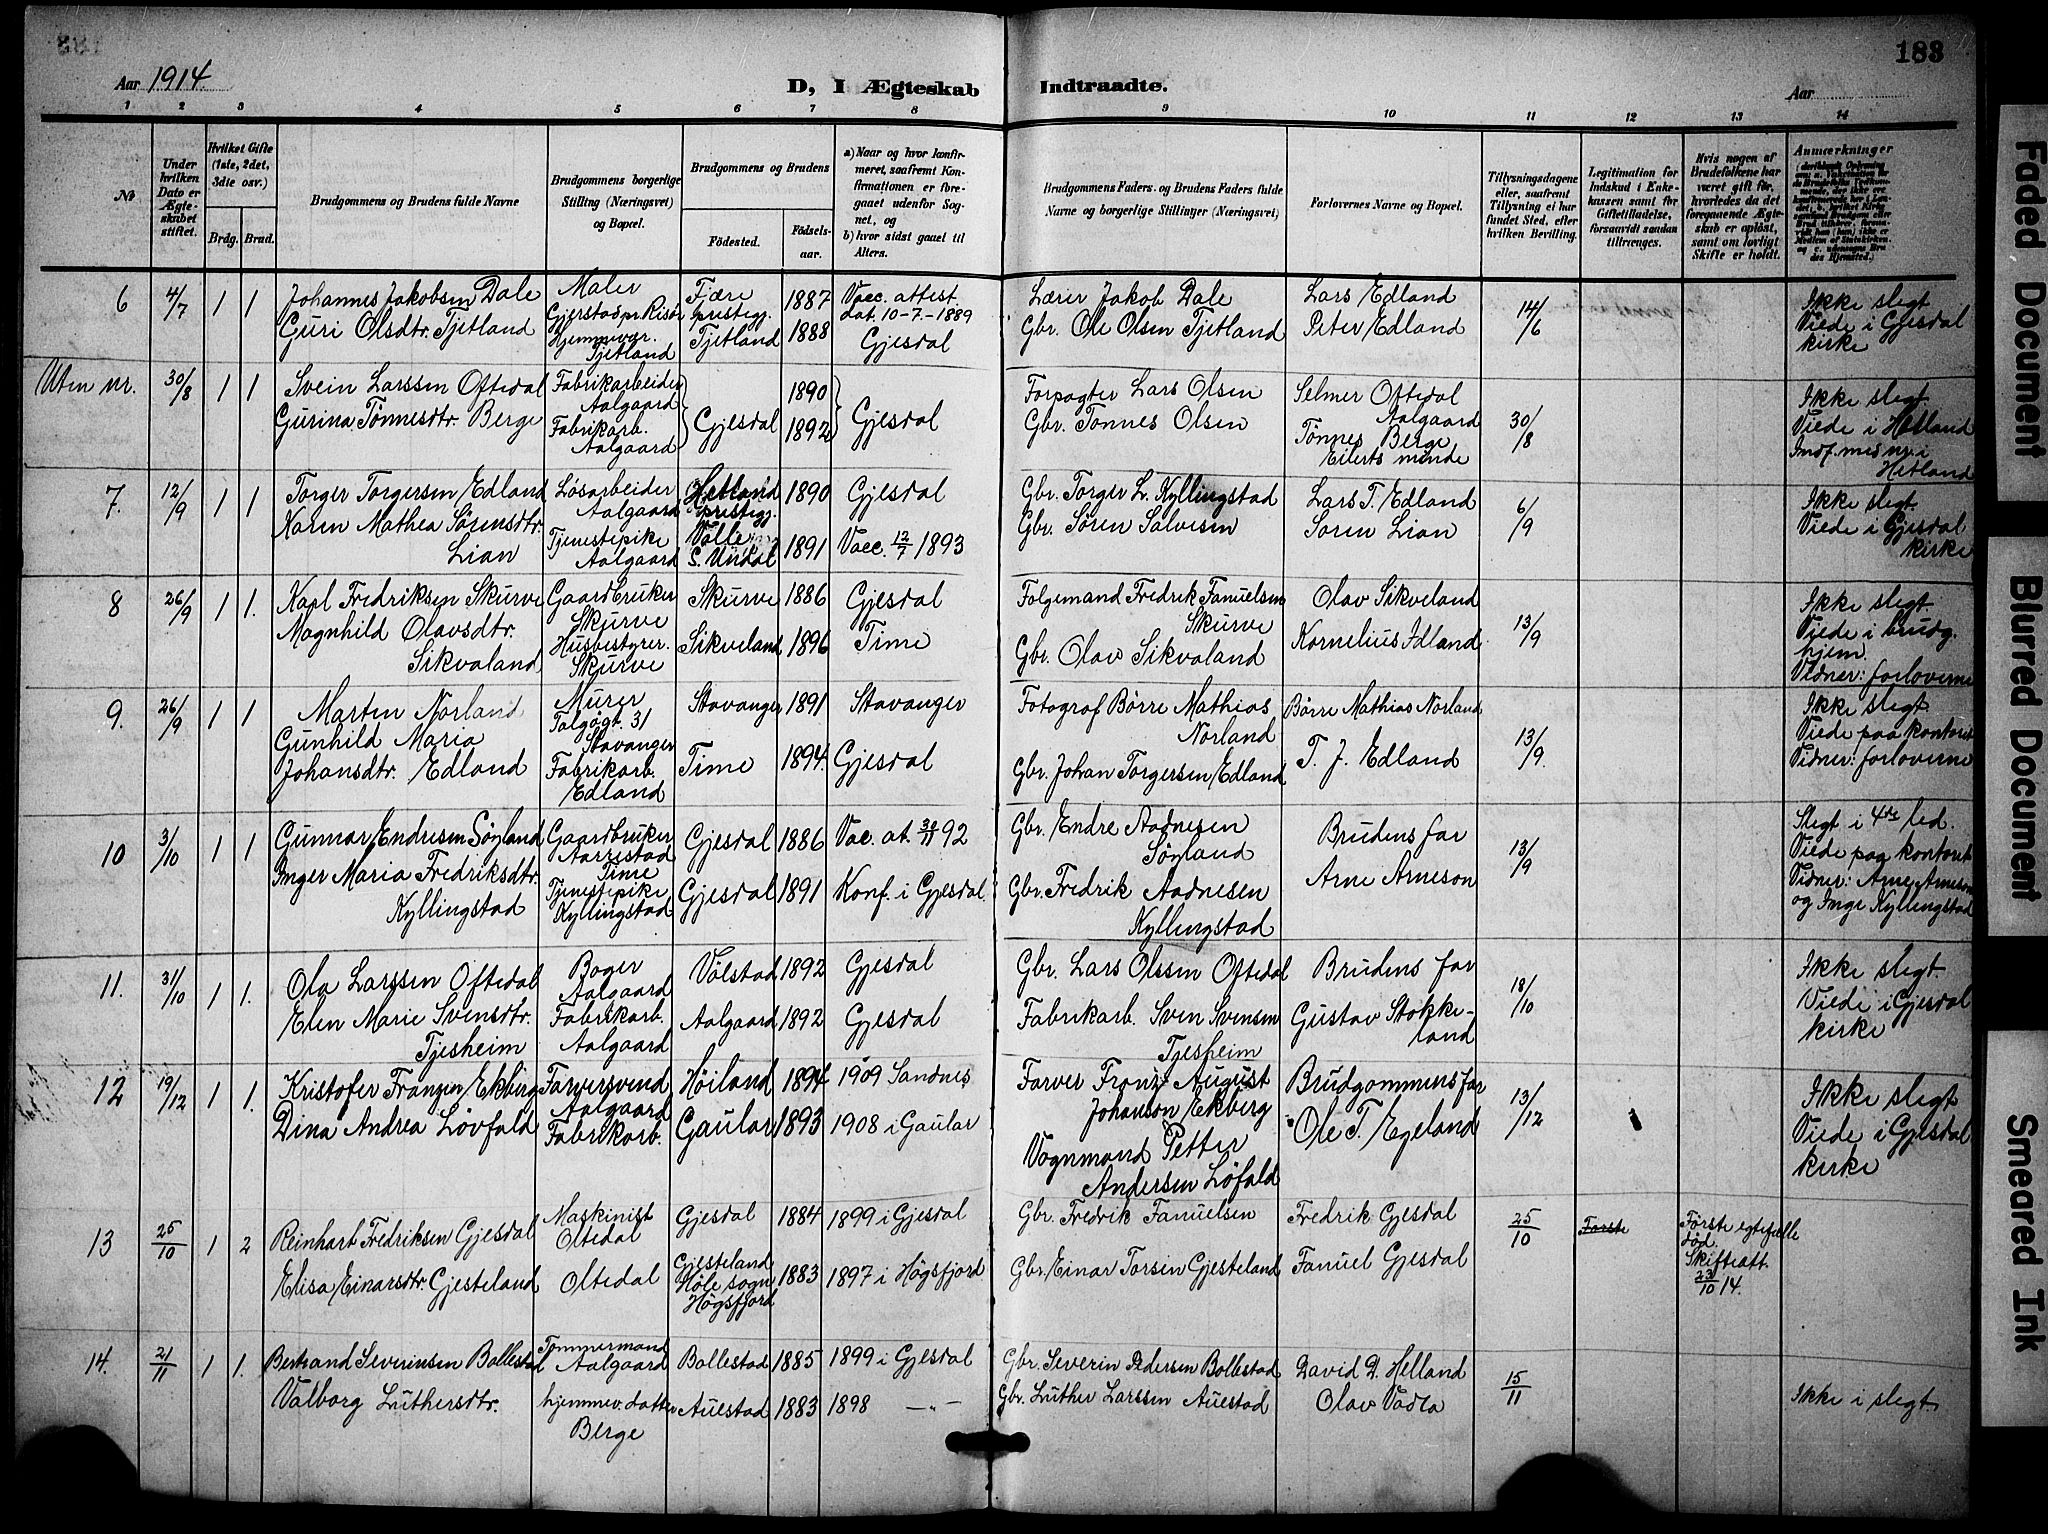 183
Aar 1914.
D, I Ægteskab Indtraadte.
Aar
1 2 3 4 5 6 7 8 9 10 11 12 13 14
№
Under hvilken Dato er Ægteskabet stiftet.
Hvilket Gifte (1ste, 2det, 3die osv.)
Brdg. Brud.
Brudgommens og Brudens fulde Navne
Brudgommens borgerlige Stilling (Næringsvei) og Bopæl.
Brudgommens og Brudens
Födested.
Födsels-aar.
a) Naar og hvor konfirmeret, saafremt Konfirmationen er foregaaet udenfor Sognet, og
b) hvor sidst gaaet til Alters.
Brudgommens Faders og Brudens Faders fulde Navne og borgerlige Stillinger (Næringsvei)
Forlovernes Navne og Bopæl.
Tillysningsdagene eller, saafremt Tillysning ei har fundet Sted, efter hvilken Bevilling.
Legitimation for Indskud i Enkekassen samt for Giftetilladelse, forsaavidt saadan tiltrænges.
Hvis nogen af Brudefolkene har været gift før, hvorledes da det foregaaende Ægteskab er oplöst, samt om lovligt Skifte er holdt.
Anmærkninger
6 4/7 1 1 Johannes Jakobsen Dale Maler Gjerstad pr. Risör Fjære prestegj. 1887 Vacc. attest dat. 10-7.-1889 Lærer Jakob Dale Lars Edland 14/6 Ikke slegt
Guri Olsdtr. Tjetland Hjemmevær. Tjetland Tjetland 1888 Gjesdal Gbr. Ole Olsen Tjetland Peter Edland Viede i Gjesdal kirke
Uten nr. 30/8 1 1 Svein Larssen Oftedal Fabrikarbeider Aalgaard Gjesdal 1890 Gjesdal Forpagter Lars Olsen Selmer Oftedal Aalgaard 30/8 Ikke slegt
Gurina Tønnesdtr. Berge Fabrikarb. Aalgaard 1892 Gbr. Tønnes Olsen Tønnes Berge Eilerts minde Viede i Hetland Indf. med nr. i Hetland
7. 12/9 1 1 Torger Torgersen Edland Løsarbeider Aalgaard Hetland prestegj. 1890 Gjesdal Gbr. Torger L. Kyllingstad Lars T. Edland 6/9 Ikke slegt
Karen Mathea Sörensdtr. Lian Tjenestepike Aalgaard Valle S. Undal 1891 Vacc. 12/7 1893 Gbr. Sören Salvesen Soren Lian Viede i Gjesdal kirke
8 26/9 1 1. Karl Fredriksen Skurve Gaardbruker Skurve Skurve 1886 Gjesdal Folgemand Fredrik Fanuelsen Skurve Olav Sikveland 13/9 Ikke slegt
Magnhild Olavsdtr. Sikvaland Husbestyrer. Skurve Sikveland 1896 Time Gbr. Olav Sikvaland Kornelius Idland Viede i brudg. hjem. Vidner: forloverne
9. 26/9 1 1 Marten Norland Murer Talgøgt. 31 Stavanger Stavanger 1891 Stavanger Fotograf Börre Mathias Norland Börre Mathias Norland 13/9. Ikke slegt
Gunhild Maria Johansdtr. Edland Fabrikarb. Edland Time 1894. Gjesdal Gbr. Johan Torgersen Edland T. J. Edland Viede paa kontoret Vidner: forloverne
10 3/10 1 1 Gunnar Endresen Søyland Gaardbruker Aarrestad Time Gjesdal 1886 Vac. at. 30/11 92 Gbr. Endre Aadnesen Søyland Brudens far 13/9 Slegt i 4de led.
Inger Maria Fredriksdtr. Kyllingstad Tjenestepike Kyllingstad Gjesdal 1891 Konf. i Gjesdal. Gbr. Fredrik Aadnesen Kyllingstad Arne Arneson Viede paa kontoret Vidner: Arne Arneson og Inge Kyllingstad
11. 31/10 1 1. Ola Larssen Oftedal Bager Aalgaard Vølstad 1892 Gjesdal Gbr. Lars Olssen Oftedal Brudens far 18/10 Ikke slegt
Elen Marie Svensdtr. Tjesheim Fabrikarb. Aalgaard Aalgaard 1892 Gjesdal Fabrikarb. Sven Svensen Tjesheim Gustav Stokkeland Viede i Gjesdal kirke
12 19/12 1 1. Kristofer Franzen Ekberg Farversvend Aalgaard Høiland 1894 1909 Sandnes Farver Franz August Johanson Ekberg Brudgommens far 13/12 Ikke slegt
Dina Andrea Lövfald Fabrikarb. Gaular 1893 1908 i Gaular Vognmand Petter Andersen Löfald Ole T. Egeland Viede i Gjesdal kirke
13 25/10 1 2 Reinhart Fredriksen Gjesdal Maskinist Oltedal Gjesdal 1884 1899 i Gjesdal Gbr. Fredrik Fanuelsen Fredrik Gjesdal 25/10 Første Første egtefælle død. Skifteatt. 23/10 14.
Elisa Einarsdtr. Gjesteland Oltedal Gjesteland Høle sogn Høgsfjord 1883 1897 i Høgsfjord Gbr. Einar Torsen Gjesteland Fanuel Gjesdal
14. 21/11 1 1. Bertrand Severinsen Bollestad Tømmermand Aalgaard Bollestad 1885 1899 i Gjesdal Gbr. Severin Pedersen Bollestad David D. Helland 15/11 Ikke i slegt
Valborg Luthersdtr. hjemmev. datter Berge Auestad 1883 1898 —"— Gbr. Luther Larssen Auestad Olav Vadla
Faded Document
Blurred Document
Smeared Ink